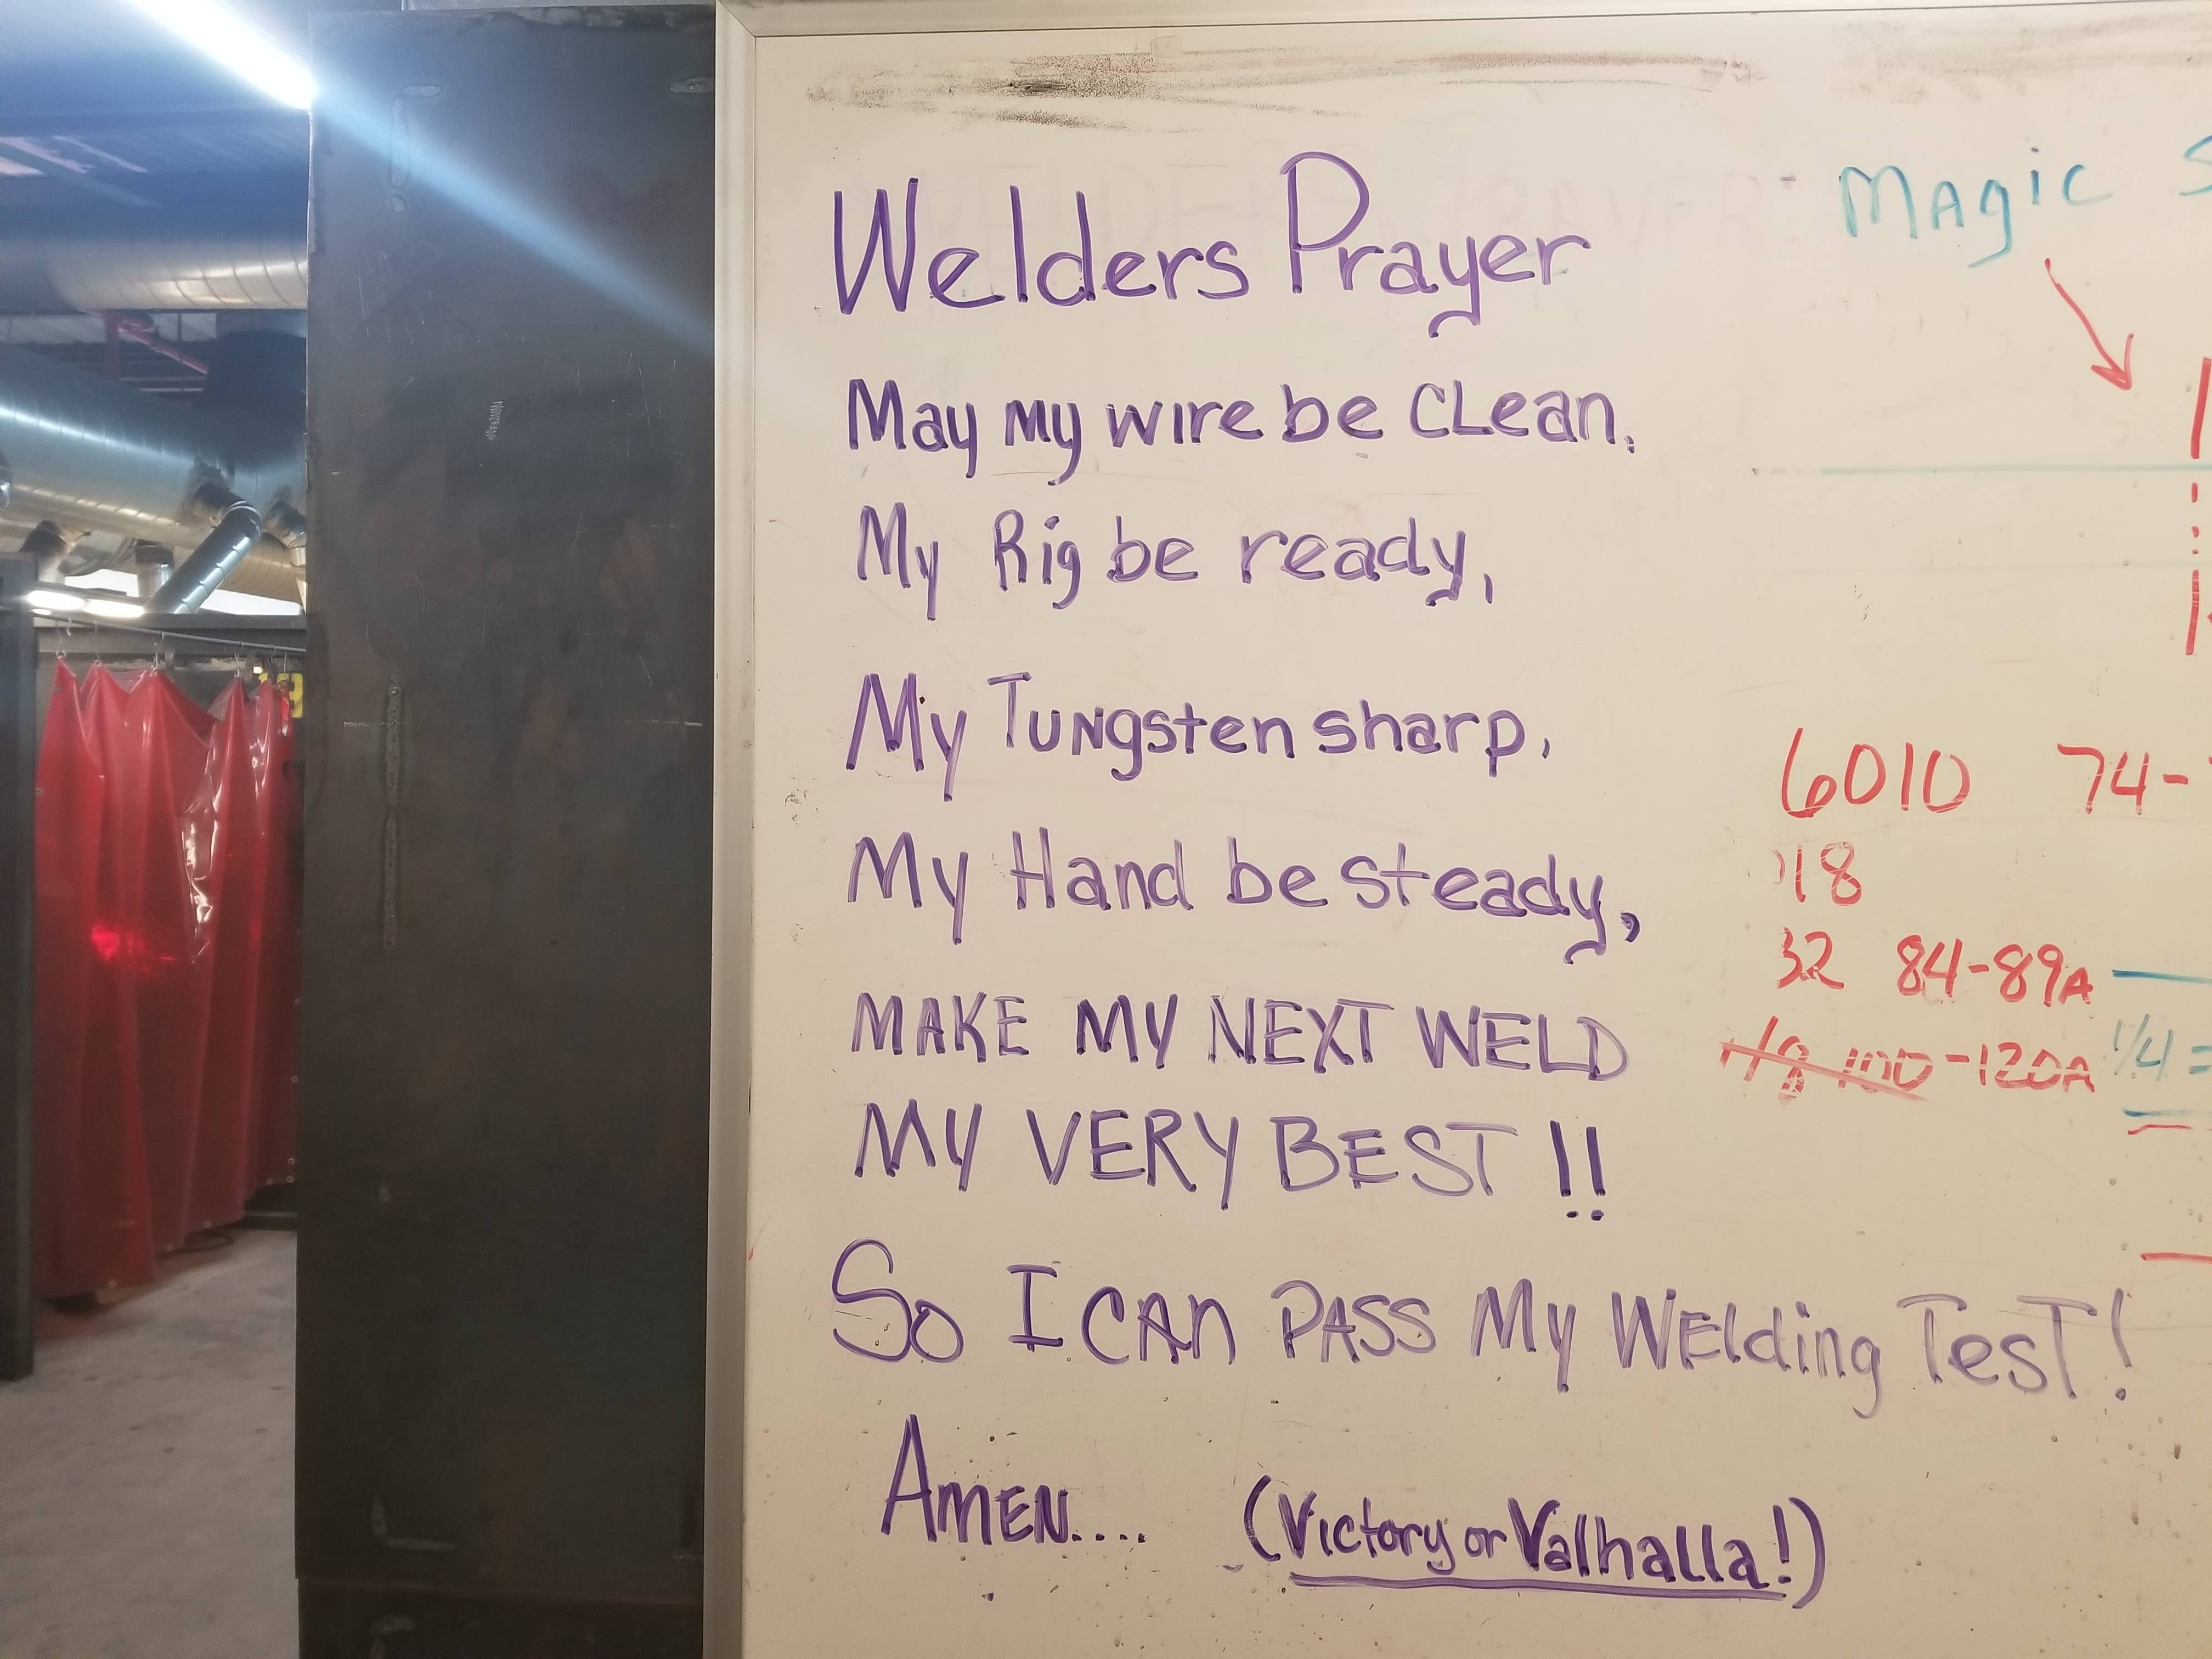 Welders Prayer
May my wire be CLean,
My Rig be ready,
My Tungsten sharp,
My Hand be steady,
MAKE MY NEXT WELD
MY VERY BEST !!
So I CAN PASS My WElding Test!
AMEN....
(Victory or Valhalla!)
Magic
6010 74-
18
32 84-89A
1/8 100-120A
1/4 =